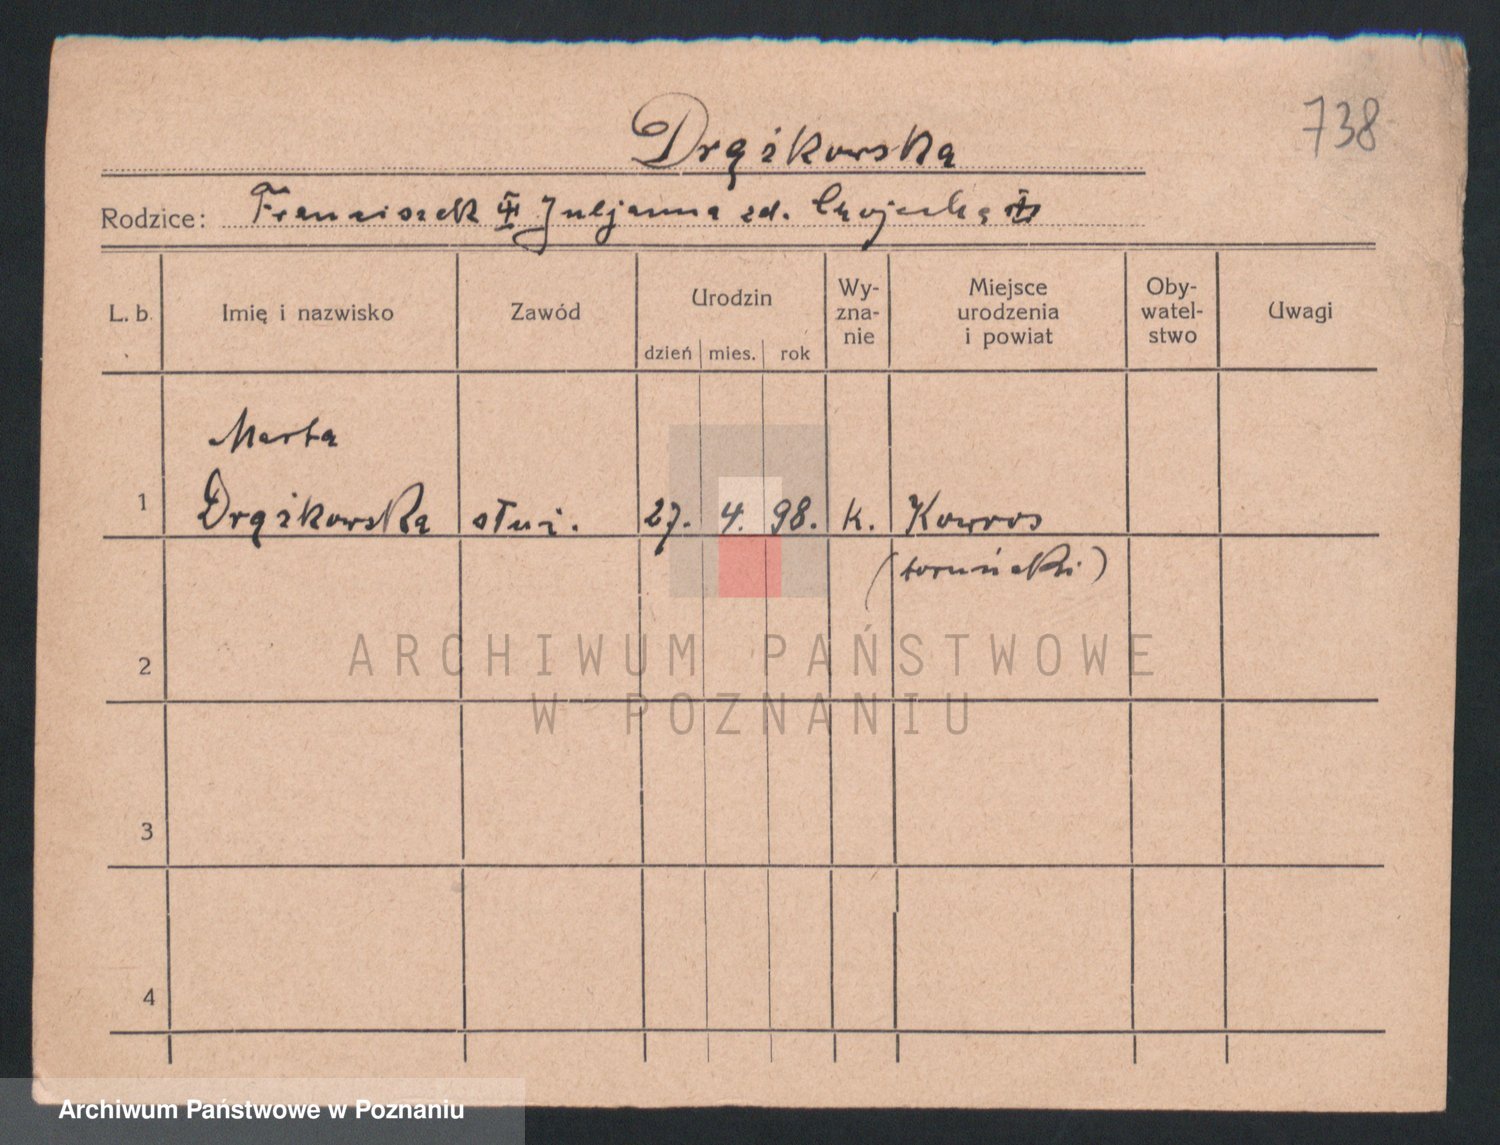 738
Drążkowska
Rodzice: Franciszek Juljanna zd.
L. b. Imię i nazwisko Zawód Urodzin dzień mies. rok Wy-zna-nie Miejsce urodzenia i powiat Oby-watel-stwo Uwagi
Marta
1 Drążkowska służ. 27. 4. 98. k. Kowros
(toruński)
2
3
4
ARCHIWUM PAŃSTWOWE
W POZNANIU
Archiwum Państwowe w Poznaniu